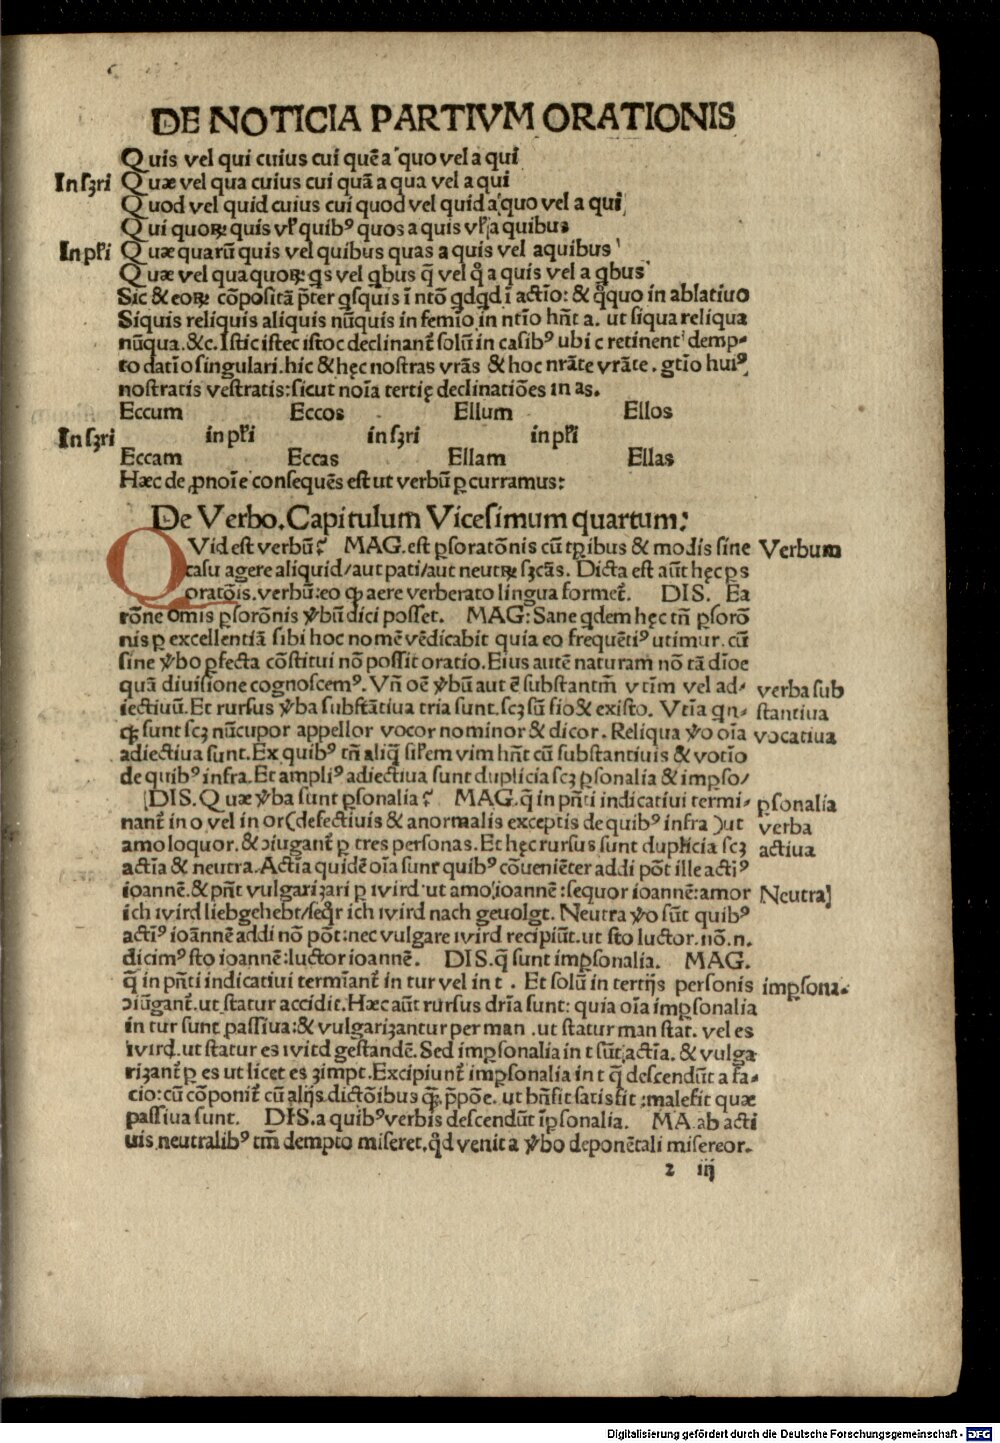 DE NOTICIA PARTIVM ORATIONIS
Quis vel qui cuius cui quē a quo vel a qui
In sꝫri Quæ vel qua cuius cui quā a qua vel a qui
Quod vel quid cuius cui quod vel quid a quo vel a qui
Qui quoꝝ quis vꝉ quibꝰ quos a quis vꝉ a quibus
In pꝉi Quæ quarū quis vel quibus quas a quis vel aquibus
Quæ vel qua quoꝝ qs vel qbus q̄ vel qͣ a quis vel a qbus
Sic & eoꝝ cōpositā p̄ter qsquis ī ntō qdqd ī actīo: & qͦquo in ablatiuo
Siquis reliquis aliquis nūquis in femīo in ntīo hn̄t a. ut siqua reliqua
nūqua. &c. Istic istec istoc declinant̄ solū in casibꝰ ubi c retinent demp-
to datīo singulari. hic & hęc nostras vrās & hoc nrāte vrāte. gtīo huiꝰ
nostratis vestratis: sicut noīa tertię declinatiōes in as.
Eccum Eccos Ellum Ellos
In sꝫri in pꝉi in sꝫri in pꝉi
Eccam Eccas Ellam Ellas
Hæc de ꝓnoīe consequēs est ut verbū ꝑcurramus:
De Verbo. Capitulum Vicesimum quartum:
QVid est verbū? MAG. est ꝑs oratōnis cū tꝑibus & modis sine Verbum
casu agere aliquid/aut pati/aut neutꝝ sꝫcās. Dicta est aūt hęc ꝑs
oratōis. verbū: eo ꝙ aere verberato lingua formet̄. DIS. Ea
rōne omīs ꝑs orōnis v̾bū dici posset. MAG: Sane qdem hęc tn̄ ꝑs orō
nis ꝑ excellentiā sibi hoc nomē vēdicabit quia eo frequētiꝰ utimur. cū
sine v̾bo ꝑfecta cōstitui nō possit oratio. Eius autē naturam nō tā dīoe
quā diuisione cognoscemꝰ. Vn̄ oē v̾bū aut ē substantm̄ vtīm vel ad- verba sub
iectiuū. Et rursus v̾ba substātiua tria sunt. scꝫ sū fio & existo. Vtīa qn- stantiua
ꝙ sunt scꝫ nūcupor appellor vocor nominor & dicor. Reliqua v̾o oīa vocatiua
adiectiua sunt. Ex quibꝰ tn̄ aliq̄ siꝉem vim hn̄t cū substantiuis & votīo
de quibꝰ infra. Et ampliꝰ adiectiua sunt duplicia scꝫ ꝑsonalia & imꝑso/
DIS. Quæ v̾ba sunt ꝑsonalia? MAG. q̄ in pn̄ti indicatiui termi- ꝑsonalia
nant̄ in o vel in or (defectiuis & anormalis exceptis de quibꝰ infra) ut verba
amo loquor. & ↄiugant̄ ꝑ tres personas. Et hęc rursus sunt duplicia scꝫ actiua
actīa & neutra. Actīa quidē oīa sunt quibꝰ cōueniēter addi pōt ille actiꝰ
ioannē. & pn̄t vulgarizari ꝑ wird ut amo ioannē: sequor ioannē: amor Neutra
ich wird liebgehebt/seqr̄ ich wird nach geuolgt. Neutra v̾o sūt quibꝰ
actiꝰ ioānnē addi nō pōt: nec vulgare wird recipiūt. ut sto luctor. nō. n.
dicimꝰ sto ioannē: luctor ioannē. DIS. q̄ sunt imꝑsonalia. MAG.
q̄ in pn̄ti indicatiui termīant̄ in tur vel in t. Et solū in tertijs personis imꝑsona-
ↄiūgant̄. ut statur accidit. Hæc aūt rursus dr̄ia sunt: quia oīa imꝑsonalia
in tur sunt passiua: & vulgarizantur per man. ut statur man stat. vel es
wird. ut statur es witd gestandē. Sed imꝑsonalia in t sūt actīa. & vulga
rizant̄ ꝑ es ut licet es zimpt. Excipiunt̄ imꝑsonalia in t q̄ descendūt a fa-
cio: cū cōponit̄ cū alijs dictōibus qͣꝫ p̄pōe. ut bn̄fit satisfit: malefit quæ
passiua sunt. DIS. a quibꝰ verbis descendūt īꝑsonalia. MA. ab acti
uis neutralibꝰ tm̄ dempto miseret, qd̄ venit a v̾bo deponētali misereor.
2 iij
Digitalisierung gefördert durch die Deutsche Forschungsgemeinschaft - DFG